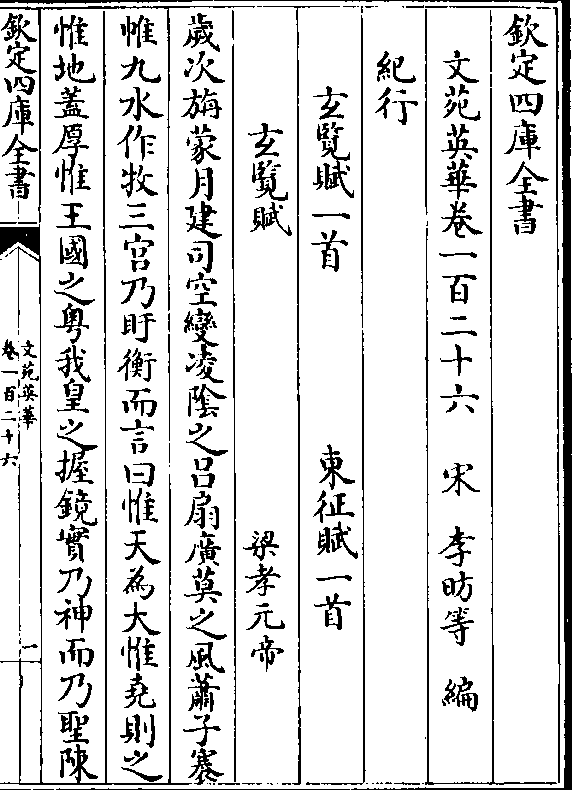 欽定四庫全書
文苑英華卷一百二十六 宋 李昉等 編
紀行
玄覽賦一首 東征賦一首
玄覽賦 梁孝元帝
歲次旃蒙月建司空變凌陰之呂扇廣莫之風蕭子褰
帷九水作牧三宫乃盱衡而言曰惟天為大惟堯則之
惟地蓋厚惟王國之粤我皇之握鏡實乃神而乃聖陳
欽定四庫全書
文苑英華
卷一百二十六
一